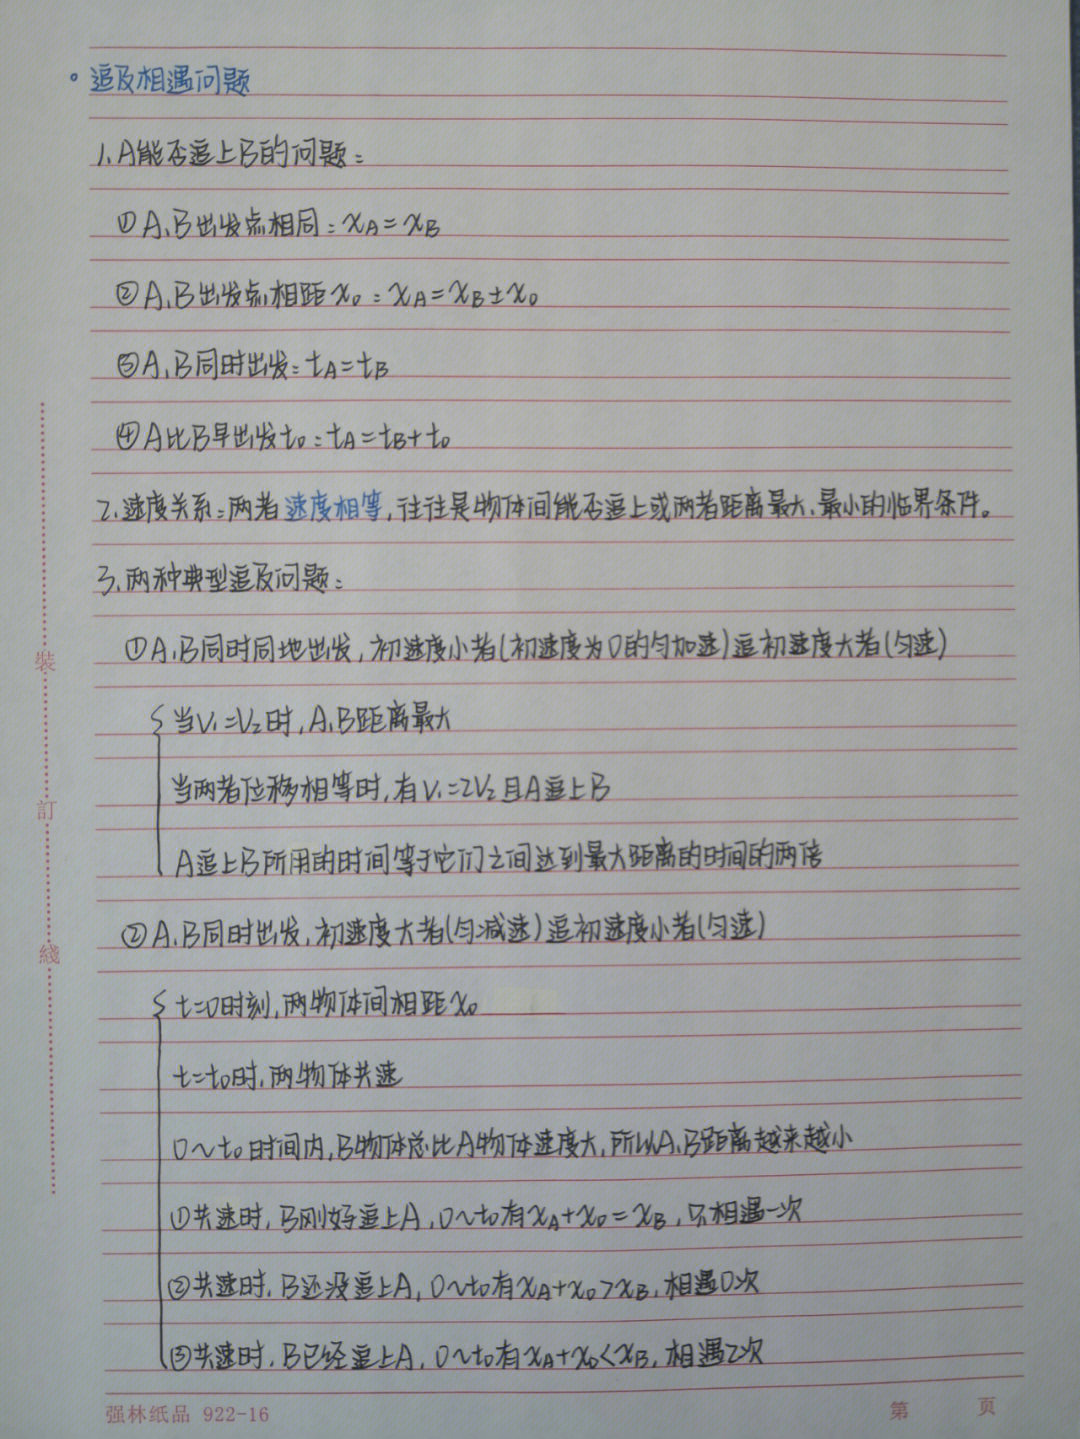 。追及相遇问题
1、A能否追上B的问题：
①A、B出发点相同：xA=xB
②A、B出发点相距x0：xA=xB±x0
③A、B同时出发：tA=tB
④A比B早出发t0：tA=tB+t0
2、速度关系：两者速度相等，往往是物体间能否追上或两者距离最大、最小的临界条件。
3、两种典型追及问题：
①A、B同时同地出发，初速度小者(初速度为0的匀加速)追初速度大者(匀速)
当V1=V2时，A、B距离最大
当两者位移相等时，有V1=2V2且A追上B
A追上B所用的时间等于它们之间达到最大距离的时间的两倍
②A、B同时出发，初速度大者(匀减速)追初速度小者(匀速)
t=0时刻，两物体间相距x0
t=t0时，两物体共速
0~t0时间内，B物体总比A物体速度大，所以A、B距离越来越小
①共速时，B刚好追上A，0~t0有xA+x0=xB，只相遇一次
②共速时，B还没追上A，0~t0有xA+x0>xB，相遇0次
③共速时，B已经追上A，0~t0有xA+x0<xB，相遇2次
裝
訂
綫
强林纸品 922-16 第 页